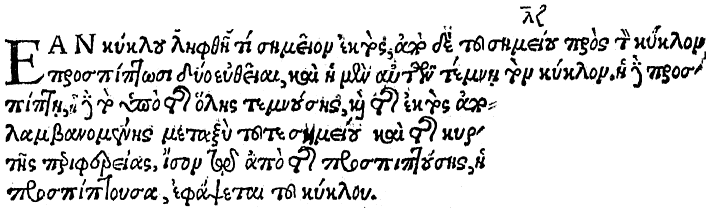 λζ
ΕΑΝ κύκλου ληφθῇ τὶ σημεῖον ἐκτὸς, ἀπὸ δὲ τοῦ σημείου πρὸς τὸν κύκλον
προσπίπτωσι δύο εὐθεῖαι, καὶ ἡ μὲν αὐτῶν τέμνῃ τὸν κύκλον, ἡ δὲ προσ-
πίπτῃ, ᾖ δὲ τὸ ὑπὸ τῆς ὅλης τεμνούσης, καὶ τῆς ἐκτὸς ἀπο-
λαμβανομένης μεταξὺ τοῦ τε σημείου καὶ τῆς κυρ-
τῆς περιφερείας, ἴσον τῷ ἀπὸ τῆς προσπιπτούσης, ἡ
προσπίπτουσα, ἐφάψεται τοῦ κύκλου.